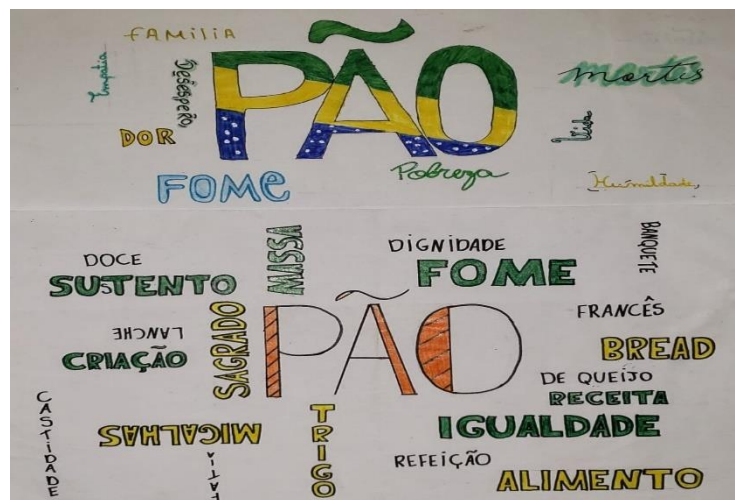 FAMÍLIA
Empatia
Desespero,
PÃO
mortis
Vida
DOR
FOME
Pobreza
Humildade,
DOCE
SUSTENTO
MISSA
DIGNIDADE
FOME
BANQUETE
FRANCÊS
LANCHE
CRIAÇÃO
SAGRADO
PÃO
BREAD
DE QUEIJO
RECEITA
CASTIDADE
MIGALHAS
TRIGO
IGUALDADE
FATIA
REFEIÇÃO
ALIMENTO